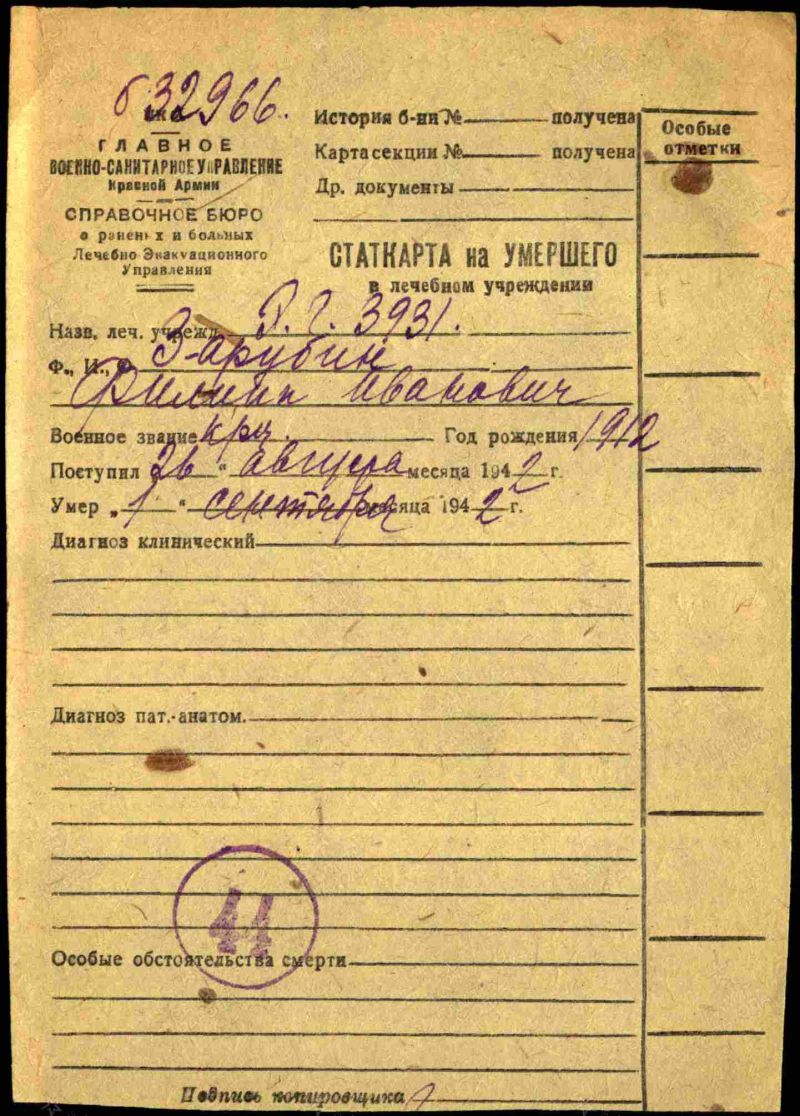 632966.
ГЛАВНОЕ
ВОЕННО-САНИТАРНОЕ УПРАВЛЕНИЕ
Красной Армии
СПРАВОЧНОЕ БЮРО
о раненых и больных
Лечебно-Эвакуационного
Управления
История б-ни № получена
Карта секции № получена
Др. документы
Особые
отметки
СТАТКАРТА на УМЕРШЕГО
в лечебном учреждении
Назв. леч. учрежд. Э.Г. 3931.
Ф., И., О. Зарубин
Филипп Иванович
Военное звание кр-ц. Год рождения 1912
Поступил 26 " августа месяца 1942 г.
Умер „1" сентября месяца 1942 г.
Диагноз клинический
Диагноз пат.-анатом.
44
Особые обстоятельства смерти
Подпись копировщика